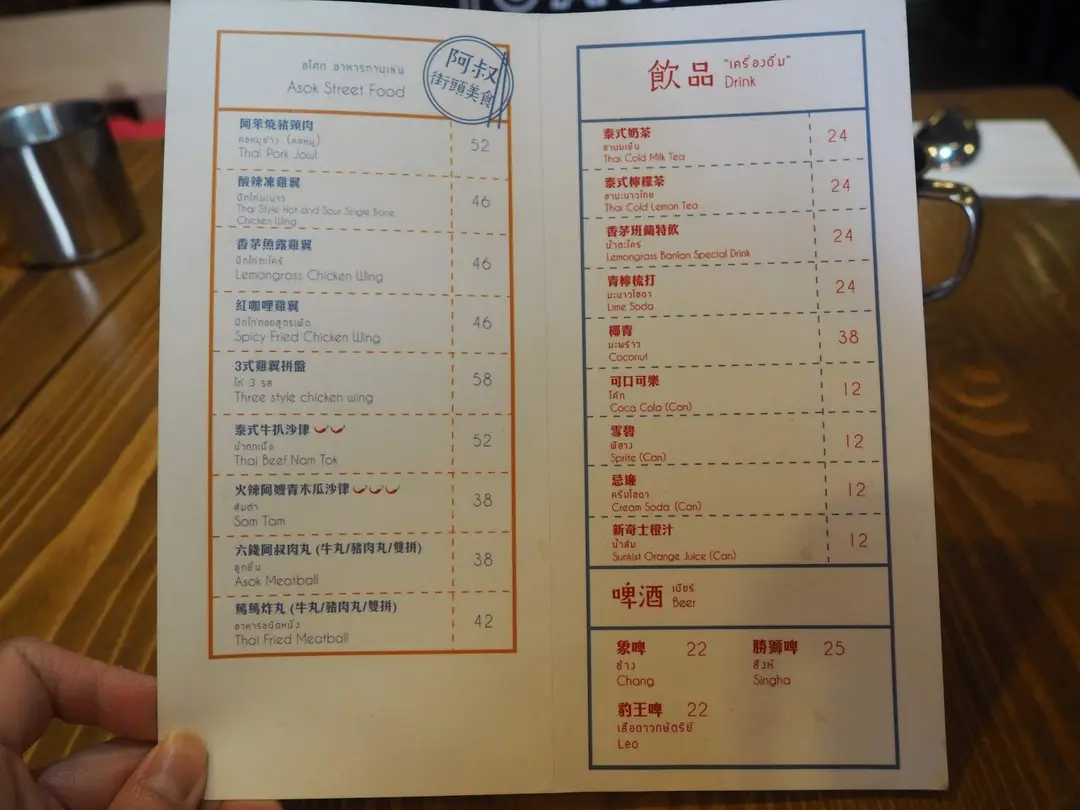 อโศก อาหารทานเล่น
Asok Street Food
阿叔
街頭美食
阿萊燒豬頸肉
คอหมูย่าง (คอหมู)
Thai Pork Jowl
52
酸辣凍雞翼
ปีกไก่มะนาว
Thai Style Hot and Sour Single Bone
Chicken Wing
46
香茅魚露雞翼
ปีกไก่ตะไคร้
Lemongrass Chicken Wing
46
紅咖哩雞翼
ปีกไก่ทอดสูตรเผ็ด
Spicy Fried Chicken Wing
46
3式雞翼拼盤
ไก่ 3 รส
Three style chicken wing
58
泰式牛扒沙律
น้ำตกเนื้อ
Thai Beef Nam Tok
52
火辣阿嫂青木瓜沙律
ส้มตำ
Som Tam
38
六錢阿叔肉丸 (牛丸/豬肉丸/雙拼)
ลูกชิ้น
Asok Meatball
38
篤篤炸丸 (牛丸/豬肉丸/雙拼)
Thai Fried Meatball
42
飲品 "เครื่องดื่ม"
Drink
泰式奶茶
ชานมเย็น
Thai Cold Milk Tea
24
泰式檸檬茶
ชามะนาวไทย
Thai Cold Lemon Tea
24
香茅班蘭特飲
น้ำตะไคร้
Lemongrass Banlan Special Drink
24
青檸梳打
มะนาวโซดา
Lime Soda
24
椰青
มะพร้าว
Coconut
38
可口可樂
โค้ก
Coca Cola (Can)
12
雪碧
Sprite (Can)
12
忌廉
ครีมโซดา
Cream Soda (Can)
12
新奇士橙汁
น้ำส้ม
Sunkist Orange Juice (Can)
12
啤酒 เบียร์
Beer
象啤 22
ช้าง
Chang
勝獅啤 25
สิงห์
Singha
豹王啤 22
เสือดาวกษัตริย์
Leo